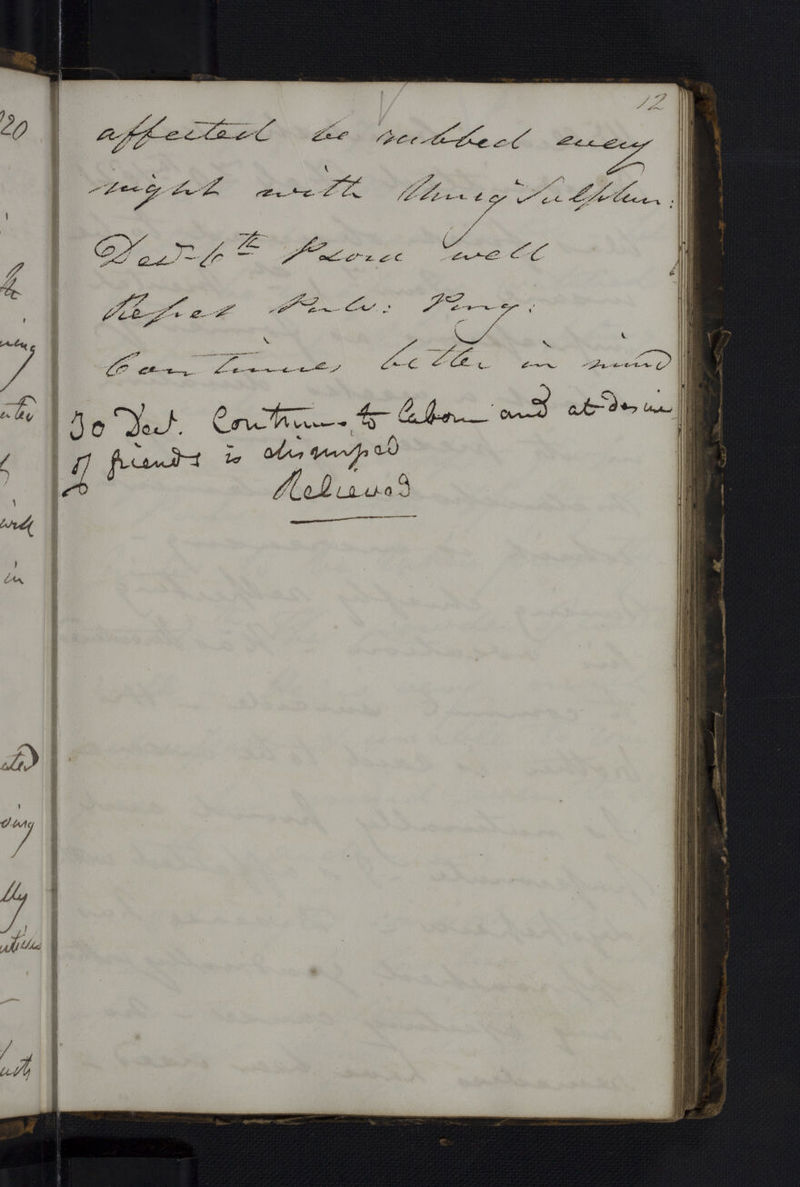 12
affected be rubbed every
night with Ung Sulphur:
Dec 6th Psora well
Repet Pulv: Purg:
Continues better in mind
30 Dec. Continues to labour and at desire
of friends is dismissed
Relieved
20
in